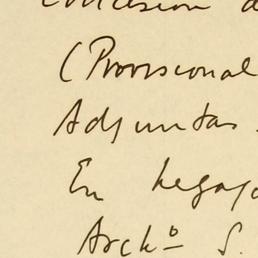 Concesion d
(Provisional
Adjuntas
En legajo
Archº S.